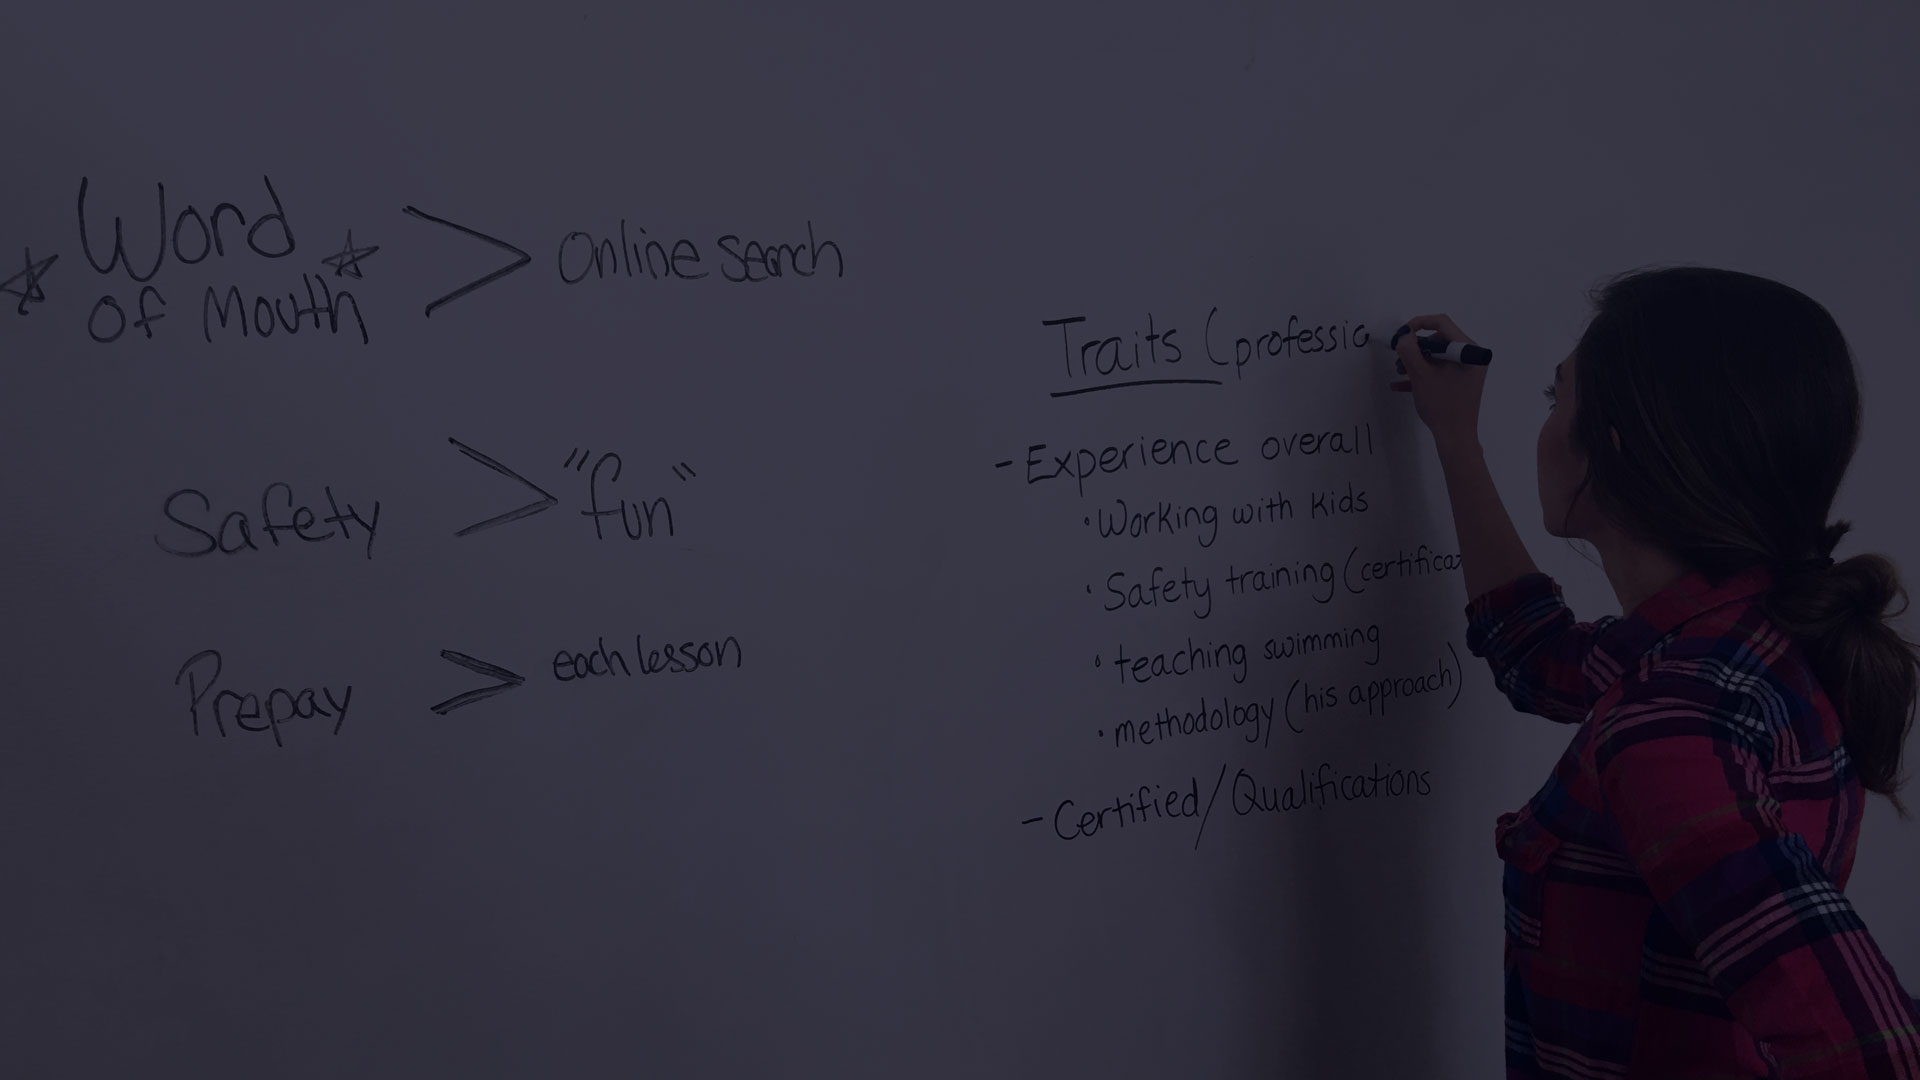 Word
of Mouth > Online search
Safety > "fun"
Prepay > each lesson
Traits (professio
- Experience overall
• Working with kids
• Safety training (certifica
• teaching swimming
• methodology (his approach)
- Certified/Qualifications